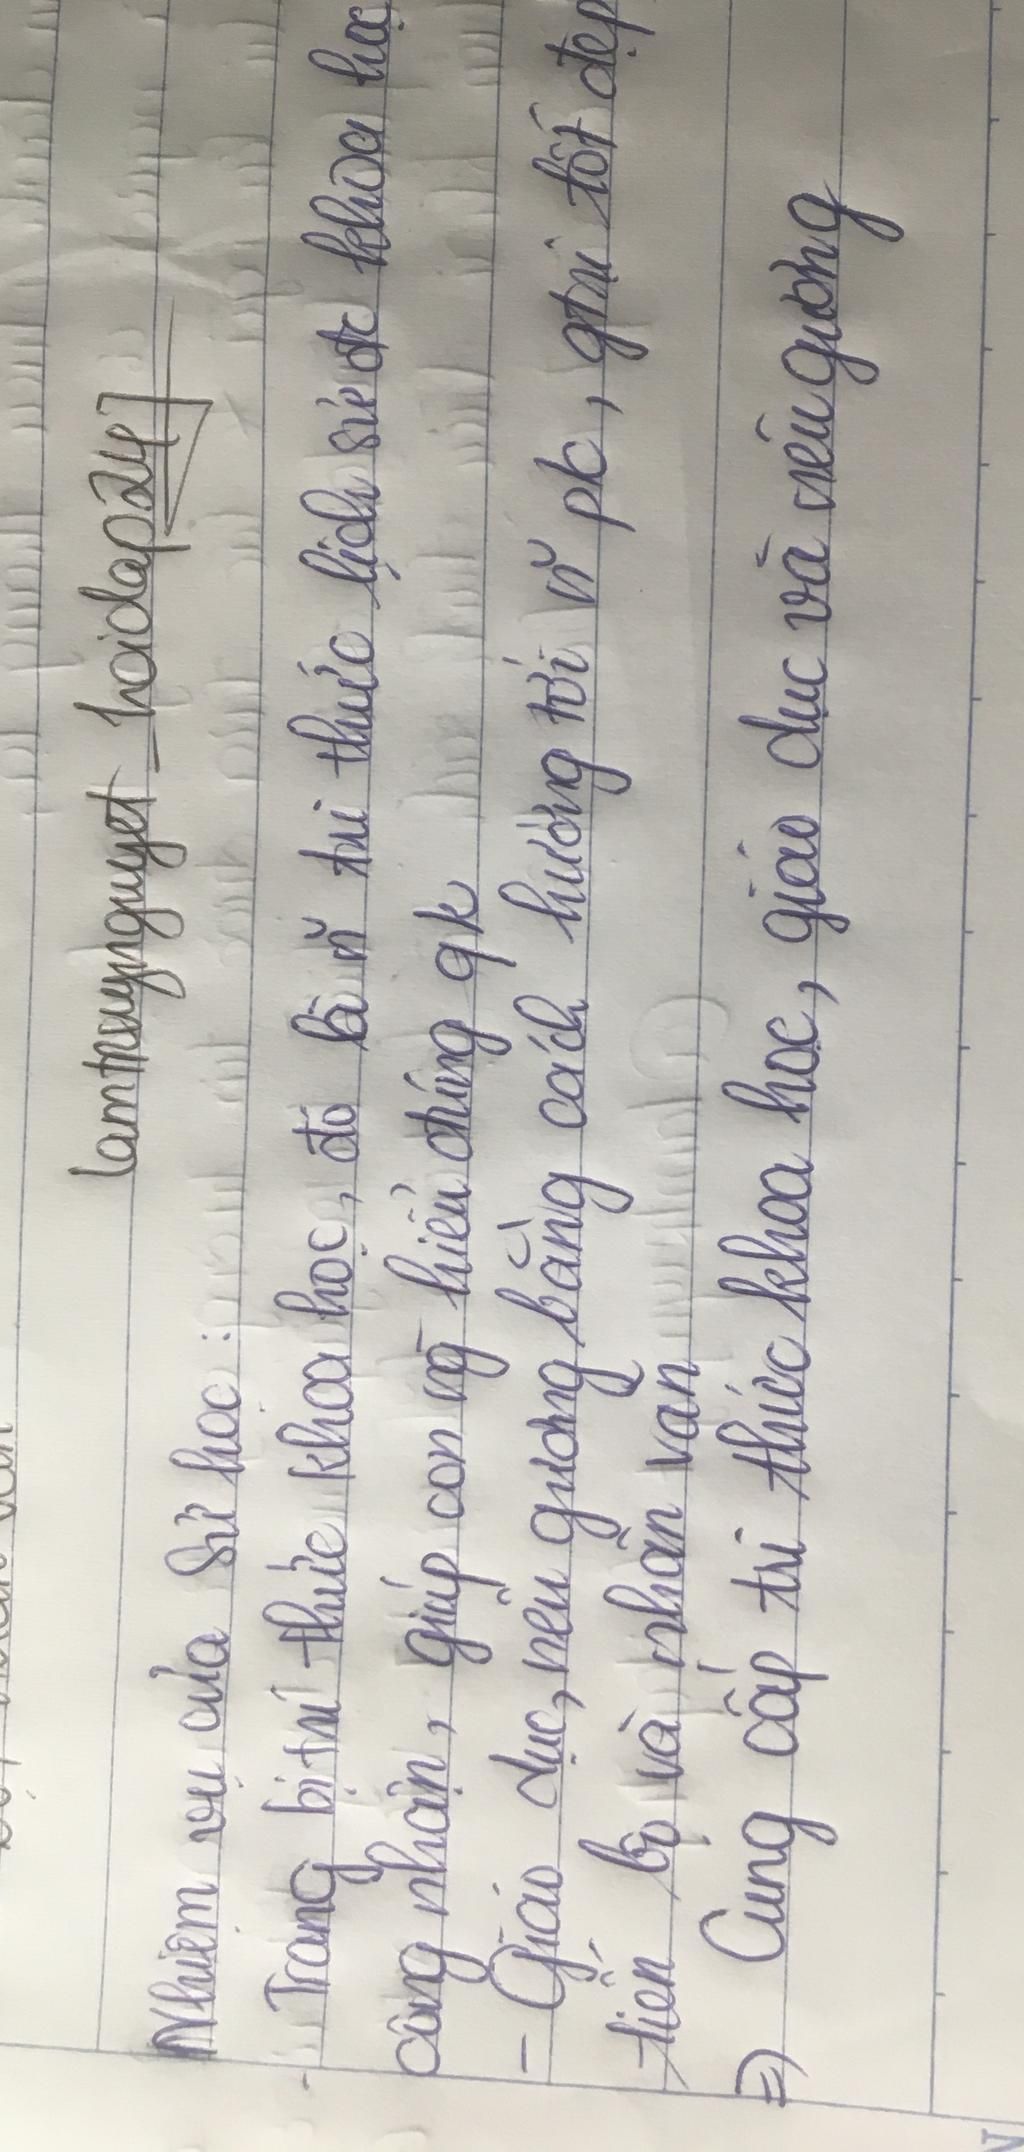 lamtrungnguyet_hoidap247
Nhiệm vụ của Sử học:
- Trang bị tri thức khoa học, đó là n~ tri thức lịch sử đc khoa học
công nhận, giúp con ng~ hiểu đúng qk
- Giáo dục, nêu gương bằng cách hướng tới n~ pc, gtrị tốt đẹp
tiến bộ và nhân văn
=) Cung cấp tri thức khoa học, giáo dục và nêu gương